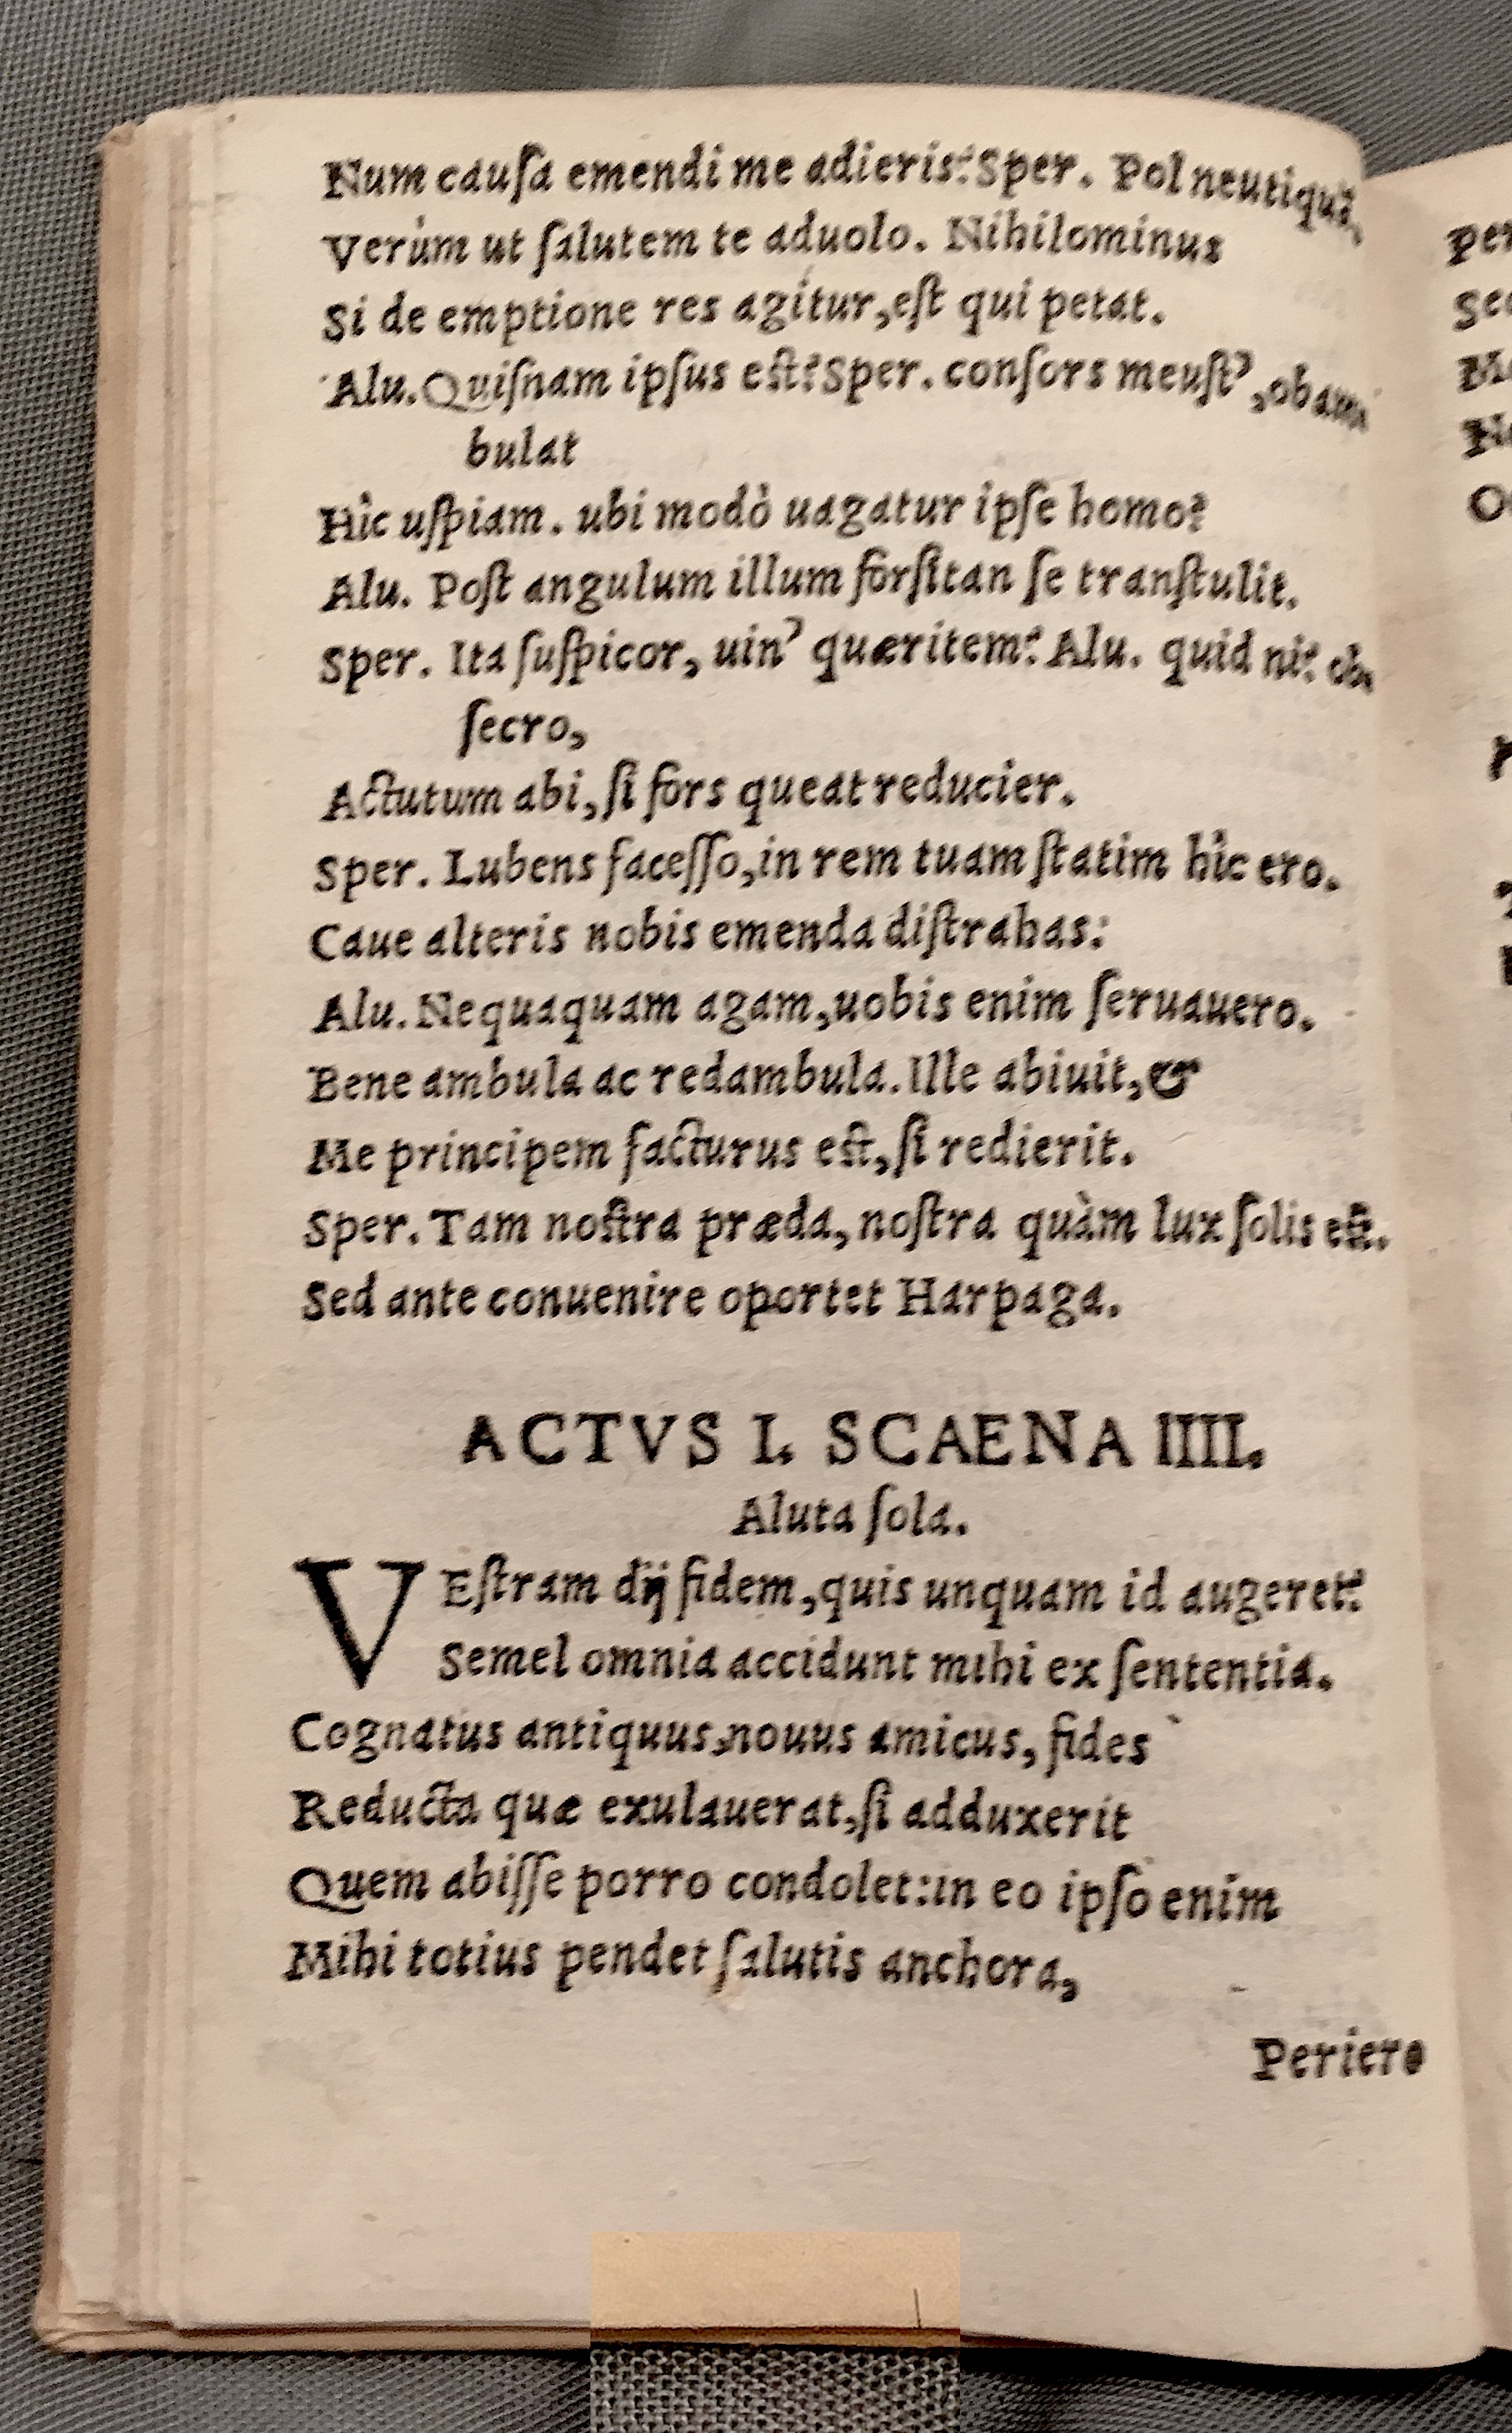 Num cauſa emendi me adieris? Sper. Pol neutiquã,
Verùm ut ſalutem te aduolo. Nihilominus
Si de emptione res agitur, eſt qui petat.
Alu. Quiſnam ipſus eſt? Sper. conſors meuſt', obam
bulat
Hîc uſpiam. ubi modò uagatur ipſe homo?
Alu. Poſt angulum illum forſitan ſe tranſtulit.
Sper. Ita ſuſpicor, uin' quæritem? Alu. quid ni? ob,
ſecro,
Actutum abi, ſi fors queat reducier.
Sper. Lubens faceſſo, in rem tuam ſtatim hîc ero.
Caue alteris nobis emenda diſtrahas:
Alu. Nequaquam agam, uobis enim ſeruauero.
Bene ambula ac redambula. Ille abiuit, &
Me principem facturus eſt, ſi redierit.
Sper. Tam noſtra præda, noſtra quàm lux ſolis eſt.
Sed ante conuenire oportet Harpaga.
ACTVS I. SCAENA IIII.
Aluta ſola.
VEſtram dij fidem, quis unquam id augeret?
Semel omnia accidunt mihi ex ſententia.
Cognatus antiquus, nouus amicus, fides
Reducta quæ exulauerat, ſi adduxerit
Quem abiſſe porro condolet: in eo ipſo enim
Mihi totius pendet ſalutis anchora,
Periero